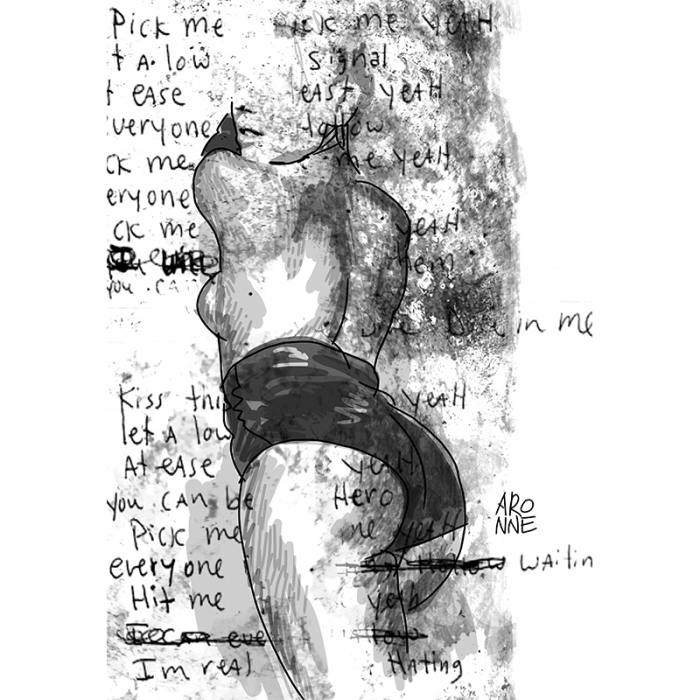 Pick me ick me yeaH
t A low signal
t ease east yeaH
veryone follow
ck me me yeaH
eryone
ck me yeaH
them
you ca
in me
Kiss this yeaH
let A low
At ease yeaH
you can be Hero
Pick me me yeaH
everyone waitin
Hit me yeah
I'm real Hating
ARO
NNE